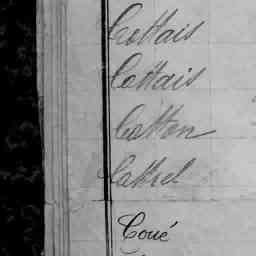 Cottais
Cottais
Cotton
Cottrel
Coué